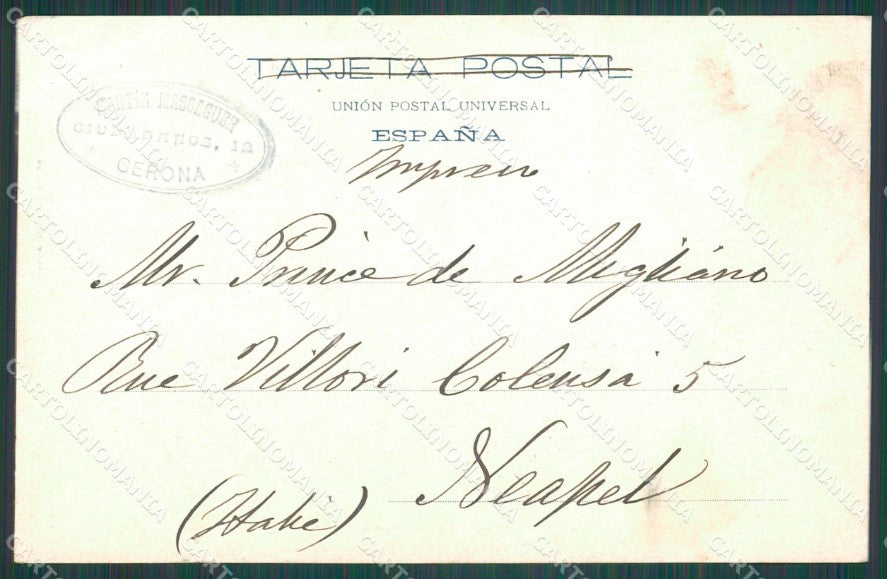 TARJETA POSTAL
UNIÓN POSTAL UNIVERSAL
ESPAÑA
MARTÍN MASSAGUER
CIUDADANOS, 12
GERONA
Mr. Prince de Migliano
Rue Vittori Colensa 5
Neapel
(Italie)
CARTOLINOMANIA